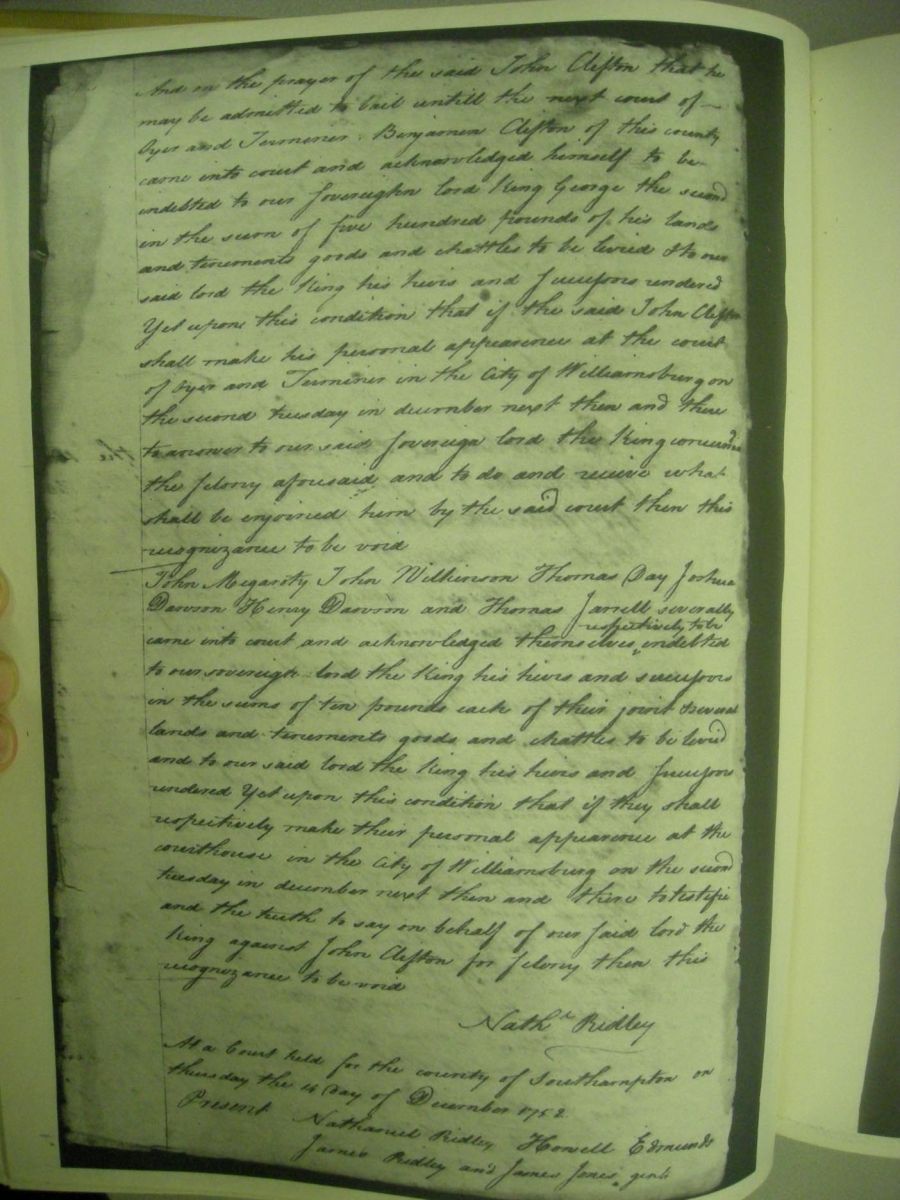 And on the prayer of the said John Clifton that he
may be admitted to bail untill the next court of
Oyer and Terminer. Benjamin Clifton of this county
came into court and acknowledged himself to be
indebted to our Sovereighn lord King George the second
in the sum of five hundred pounds of his lands
and tenements goods and chattles to be levied & to our
said lord the King his heirs and Successors rendered
Yet upon this condition that if the said John Clifton
shall make his personal appearence at the court
of Oyer and Terminer in the City of Williamsburg on
the second tuesday in december next then and there
to answer to our said Sovereign lord the King concerning
the felony aforesaid and to do and receive what
shall be enjoined him by the said court then this
recognizance to be void
John Megarity John Wilkinson Thomas Day Joshua
Dawson Henry Dawson and Thomas Jarrell severally
respectively to be
came into court and acknowledged themselves indebted
to our sovereign lord the King his heirs and successors
in the sums of ten pounds each of their joint & several
lands and tenements goods and chattles to be levied
and to our said lord the King his heirs and Successors
rendered Yet upon this condition that if they shall
respectively make their personal appearence at the
courthouse in the City of Williamsburg on the second
tuesday in december next then and there to testifie
and the truth to say on behalf of our said lord the
King against John Clifton for felony then this
recognizance to be void
Nath.l Ridley
At a Court held for the county of Southampton on
thursday the 14 Day of December 1752
Present
Nathaniel Ridley Howell Edmunds
James Ridley and James Jones gent